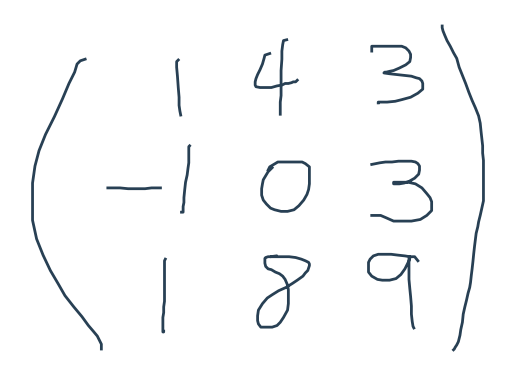 1 4 3
-1 0 3
1 8 9